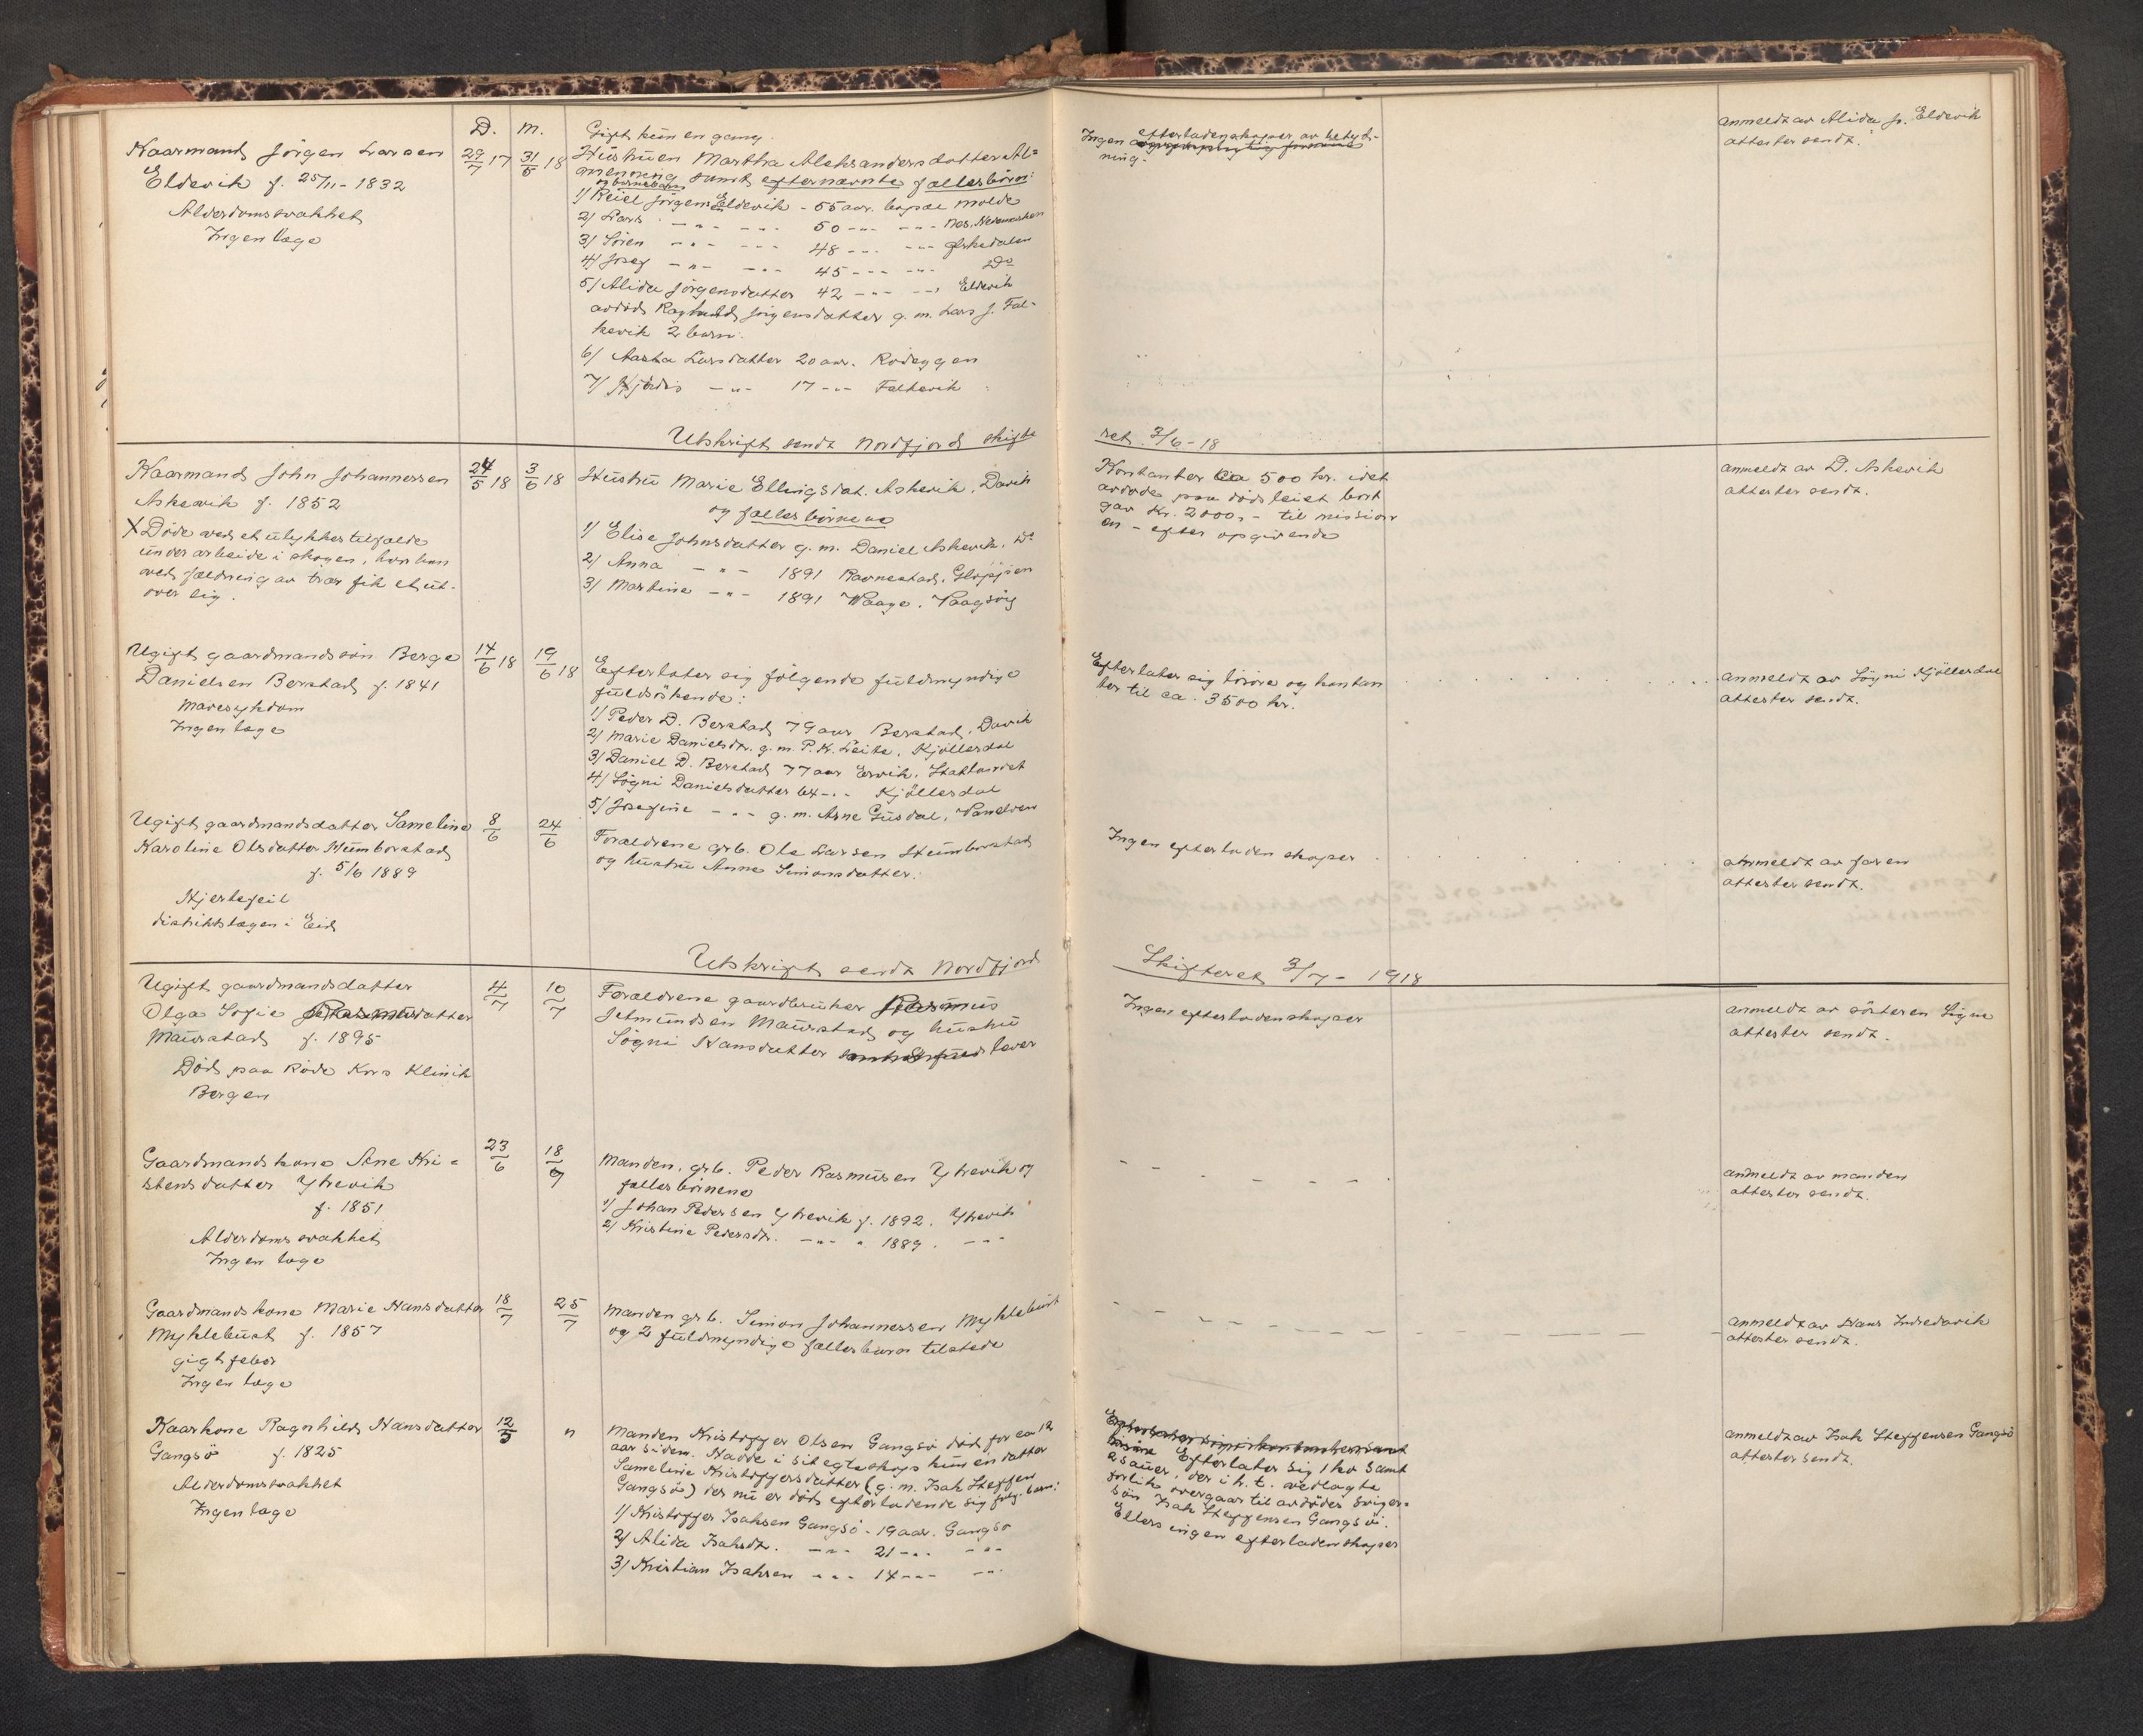 D. M.
Kaarmand Jörgen Larsen
Eldevik f. 25/11 - 1832
Alderdomssvakhet
Ingen læge
29/7 17 31/5 18
Gift kun en gang.
Hustruen Martha Aleksandersdatter Al=
menning samt efternævnte fællesbörn:
og barnebarn
1/ Reiel Jörgensen Eldevik - 55 aar. bopæl Molde
2/ Lars - " - - " - 50 - " - - " - Nes, Hedemarken
3/ Sören - " - - " - 48 - " - - " - Ørskedalen
4/ Josef - " - - " - 45 - " - - " - Do
5/ Alida Jörgensdatter 42 - " - - " - Eldevik
avdöd Jörgensdatter g. m. Lars J. Fal-
kevik 2 barn.
6/ Aasta Larsdatter 20 aar. Rodeggen
7/ Hjördis - " - 17 - " - Falkevik
Ingen efterladenskaper av betyd-
ning.
anmeldt av Alida Jr. Eldevik
attester sendt.
Utskrift sendt Nordfjord skifte
ret 3/6 - 18
Kaarmand John Johannessen
Askevik f. 1852
X Döde ved et ulykkestilfælde
under arbeide i skogen, hvor han
ved fældning av trær fik et ut-
over sig.
24/5 18 3/6 18
Hustru Marie Ellingsdat. Askevik, Davik
og fællesbörnene
1/ Elise Johnsdatter g. m. Daniel Askevik. Do
2/ Anna - " - 1891 Ravnestad, Gloppen
3/ Martine - " - 1891 Vaage, Vaagsöy
Kontanter Ca 500 kr. idet
avdöde paa dödsleiet bort
gav Kr. 2000,- til mission
en - efter opgivende
anmeldt av D. Askevik
attester sendt.
Ugift gaardmandssön Berge
Danielsen Berstad f. 1841
Mavesykdom
Ingen læge
14/6 18 19/6 18
Efterlater sig fölgende fuldmyndige
fuldsökende:
1/ Peder D. Berstad 79 aar Berstad, Davik
2/ Marie Danielsdtr. g. m. P. K. Leite, Kjöllesdal
3/ Daniel D. Berstad 77 aar Ervik, Statlandet
4/ Sögni Danielsdatter 64 - " - Kjöllesdal
5/ Josefine - " - g. m. Arne Gusdal, Vanelven
Efterlater sig lösöre og kontan
ter til ca. 3500 kr.
anmeldt av Sögni Kjöllesdal
attester sendt.
Ugift gaardmandsdatter Sameline
Karoline Olsdatter Humborstad
f. 5/6 1889
Hjertefeil
distriktslægen i Eid
8/6 24/6
Forældrene grb. Ole Larsen Humborstad
og hustru Anne Simonsdatter.
Ingen efterladenskaper
anmeldt av faren
attester sendt.
Utskrift sendt Nordfjord
Skifteret 3/7 - 1918
Ugift gaardmandsdatter
Olga Sofie Rasmusdatter
Maurstad f. 1895
Död paa Röde Kors Klinik
Bergen
4/7 10/7
Forældrene gaardbruker Rasmus
Jetmundsen Maurstad og hustru
Sögni Hansdatter lever
Ingen efterladenskaper
anmeldt av sösteren Signe
attester sendt.
Gaardmandskone Ane Kri=
stensdatter Ytrevik
f. 1851
Alderdomssvakhet
Ingen læge
23/6 18/7
Manden. grb. Peder Rasmusen Ytrevik og
fællesbörnene
1/ Johan Pedersen Ytrevik f. 1892. Ytrevik
2/ Kristine Pedersdtr. - " - " 1889. - " -
anmeldt av manden
attester sendt.
Gaardmandskone Marie Hansdatter
Myklebust f. 1857
gigtfeber
Ingen læge
18/7 25/7
Manden grb. Simon Johannessen Myklebust
og 2 fuldmyndige fællesbarn tilstede
anmeldt av Hans Indredavik
attester sendt.
Kaarkone Ragnhild Hansdatter
Gangsö f. 1825
Alderdomssvakhet
Ingen læge
12/5 "
Manden Kristoffer Olsen Gangsö död for ca 12
aar siden. Hadde i sit egteskap kun en datter
Sameline Kristoffersdatter (g. m. Isak Steffen
Gangsö) der nu er död efterladende sig fölg. barn:
1/ Kristoffer Isaksen Gangsö - 19 aar. Gangsö
2/ Alida Isaksdtr. - " - 21 - " - - " -
3/ Kristian Isaksen - " - 14 - " - - " -
Efterlater sig 1 ko samt
2 sauer, der i h. t. vedlagte
forlik overgaar til avdödes sviger=
sön Isak Steffensen Gangsöi.
Ellers ingen efterladenskaper
anmeldt av Isak Steffensen Gangsö
attester sendt.